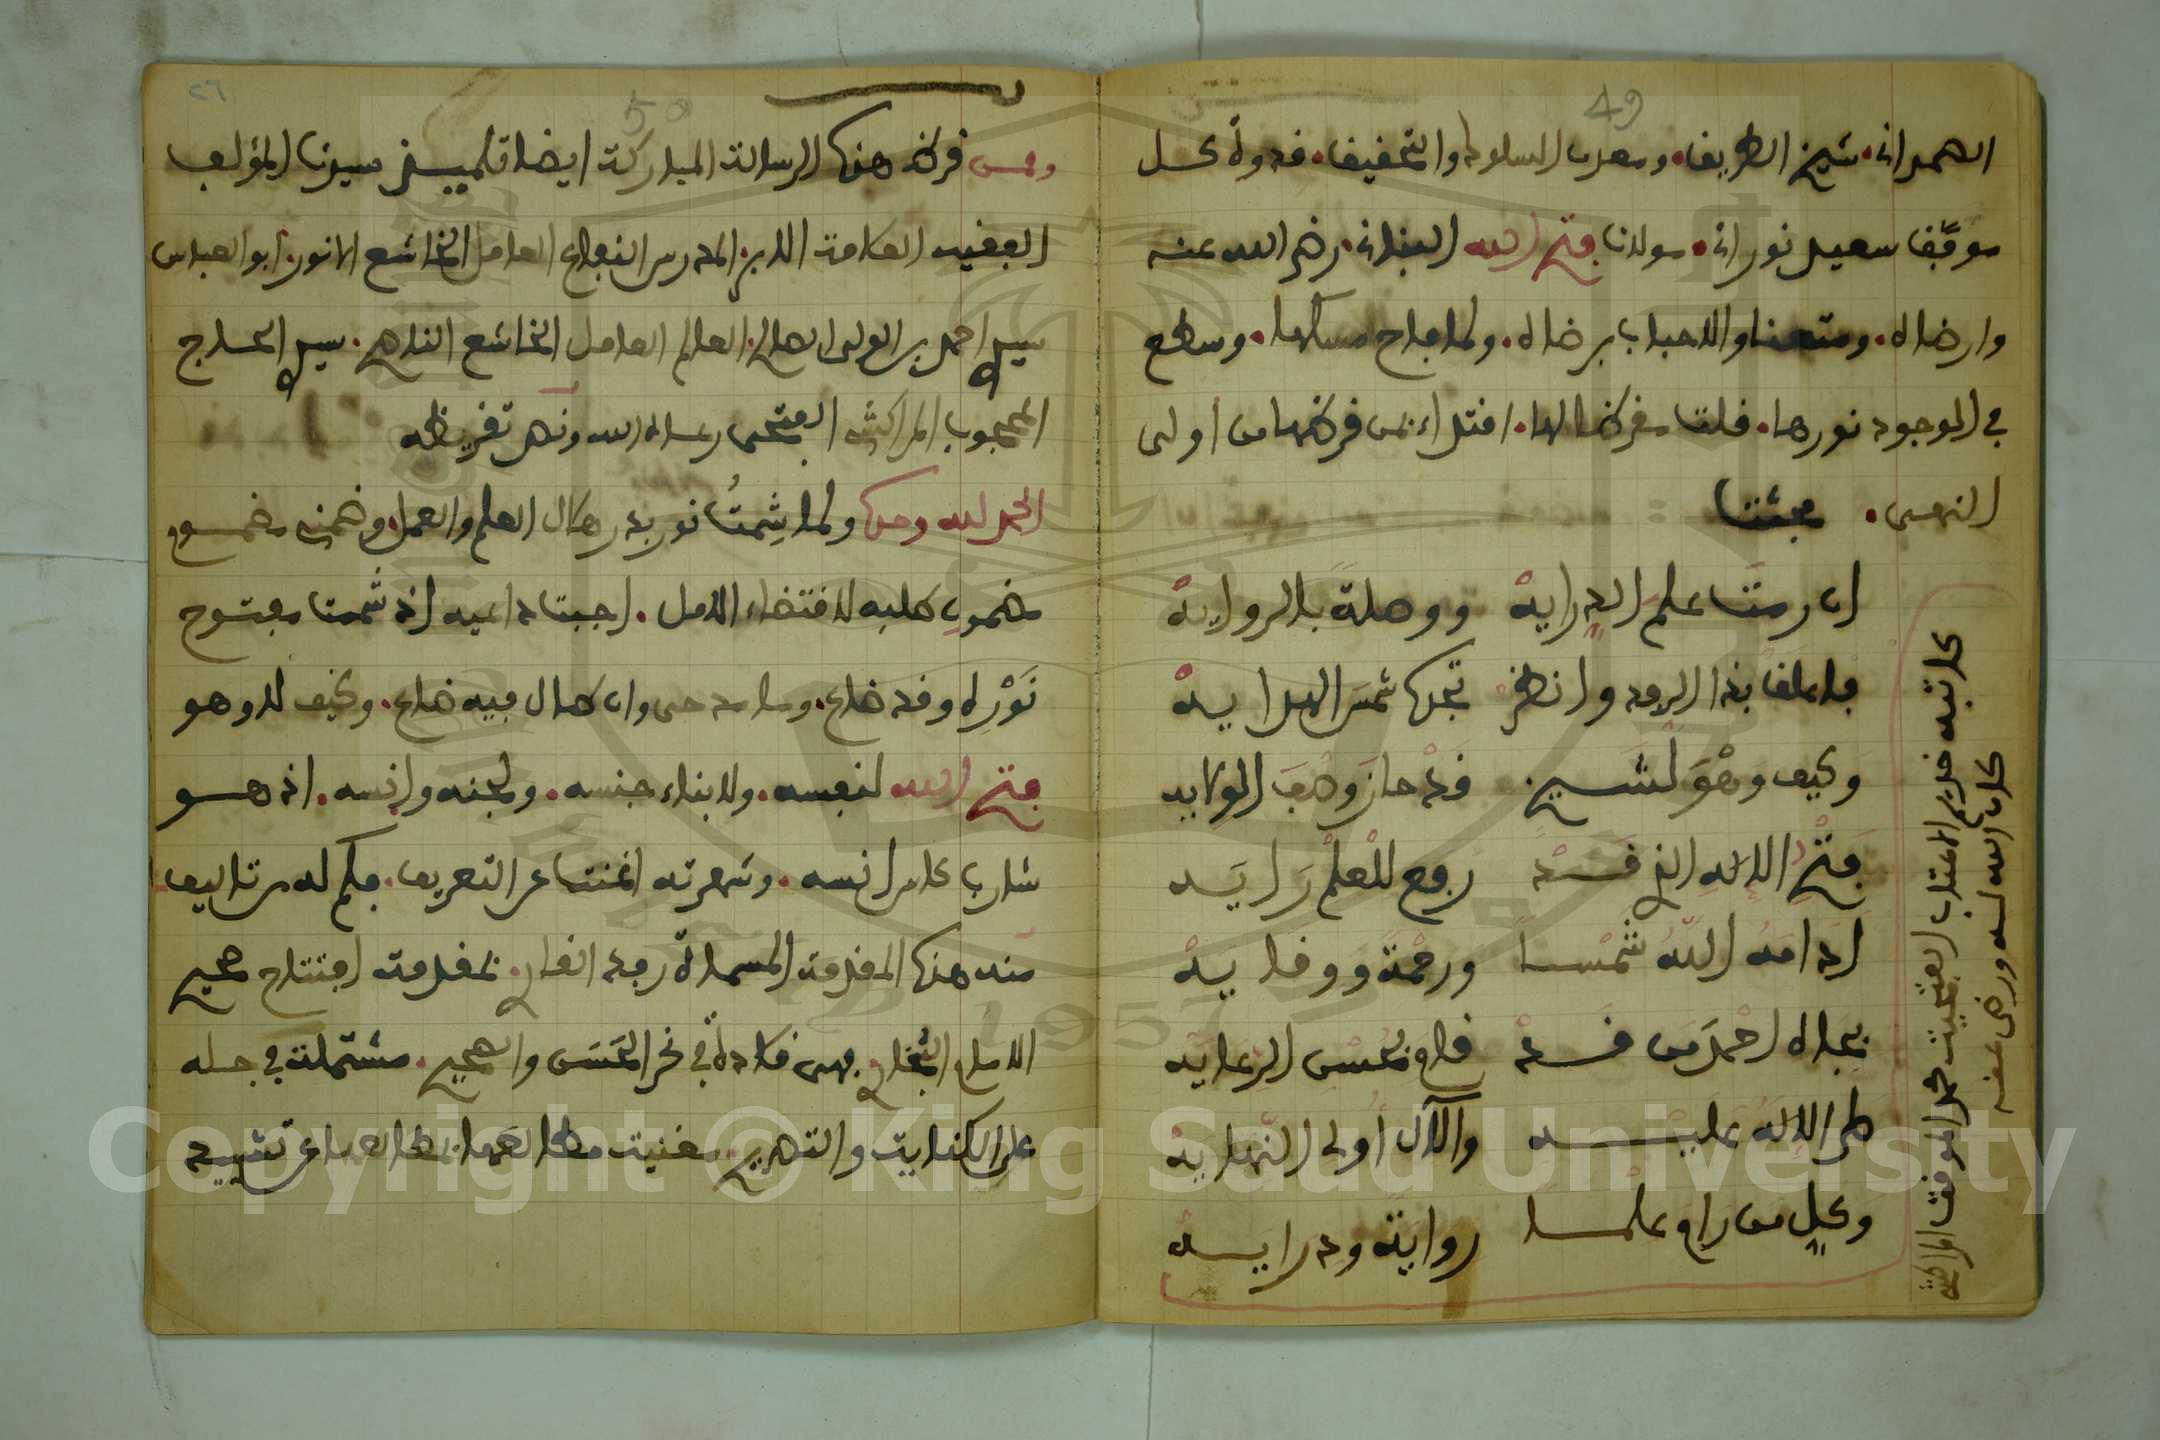 49
الصمداني. شيخ الطريف. ومعدن السلوك والتحقيق. قدوة كل
موفق سعيد نوراني. مولانا فتح الله البناني. رضي الله عنه
وارضاه. ومتعنا والاحباب برضاه. ولما فاح مسكها. وسطع
في الوجود نورها. قلت مقرظا لها. اقتداء بمن قرظها من اولى
النهى. فقلت
ان رمت علم الدراية ووصلة بالرواية
فاعلق بذا الرفد وانظر تجدها شمس الهداية
وكيف وهو لشيخ قد حاز وصف الولايه
فتح الاله الذي قد رفع للعلم رايه
ادامه الله شمسا ورحمة ووقايه
بجاه احمد من قد فاق بحسن الرعايه
صلى الاله عليه والآل أولى النهايه
وكل من راق علما رواية ودرايه
كاتبه خديم الاعتاب الفقير محمد الموقت المراكشي
كان الله له ورضى عنه
٢٦
50
وممن قرظ هذه الرسالة المباركة ايضا تلميذ سيدنا المؤلف
الفقيه العلامة الابر. المدرس النفاع العامل الخاشع الانور. ابو العباس
سيدي احمد بن الولى الصالح. العالم العامل الخاشع الناصح. سيدي الحاج
المحجوب المراكشي رعاه الله ونص تقريظه
الحمد لله وحده ولما شمت نور بدر كمال العلم والعمل. وضمنه مضمون
مضمون طلبه لاقتضاء الامل. اجبت داعيه اذ شممت مفتوح
نوره وقد ضاع. وما مدحى وان طال فيه ضاع. وكيف لا وهو
فتح الله لنفسه. ولابناء جنسه. ولجنه وانسه. اذ هو
شارب كاس انسه. وشهرته اغنت عن التعريف. فكم له من تاليف
منه هذه المقدمة المسماة رفد القارى. بمقدمة افتتاح صحيح
الامام البخارى. فهى قلادة في نحر الحسن والصحيح. مشتملة في جله
على الكناية والتصريح.
Copyright © King Saud University
1957